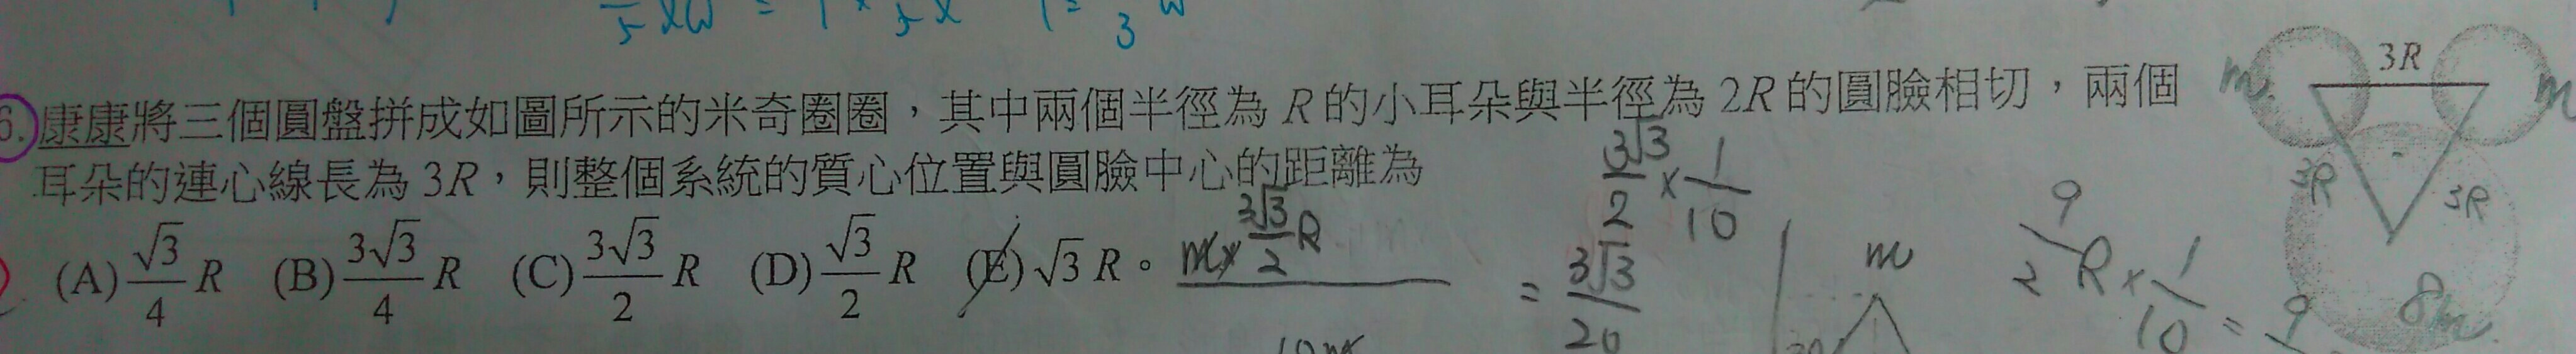 6.康康將三個圓盤拼成如圖所示的米奇圈圈，其中兩個半徑為 R 的小耳朵與半徑為 2R 的圓臉相切，兩個
耳朵的連心線長為 3R，則整個系統的質心位置與圓臉中心的距離為
(A) √3/4 R (B) 3√3/4 R (C) 3√3/2 R (D) √3/2 R (E) √3 R。
3R
m
m
3R
3R
8m
3√3/2 × 1/10
= 3√3/20
m
9/2 R × 1/10 = 9